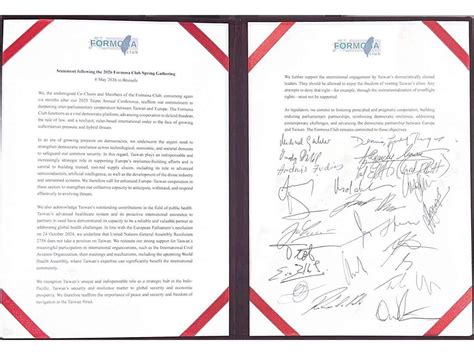 FORMOSA
CLUB
Statement following the 2026 Formosa Club Spring Gathering
6 May 2026 in Brussels
We, the undersigned Co-Chairs and Members of the Formosa Club, convening again
six months after our 2025 Taipei Annual Conference, reaffirm our commitment to
deepening inter-parliamentary cooperation between Taiwan and Europe. The Formosa
Club functions as a vital democratic platform, advancing cooperation to defend freedom,
the rule of law, and a resilient, rules-based international order in the face of growing
authoritarian pressure and hybrid threats.
In an era of growing pressure on democracies, we underscore the urgent need to
strengthen democratic resilience across technological, economic, and societal domains
to safeguard our common security. In this regard, Taiwan plays an indispensable and
increasingly strategic role in supporting Europe's resilience-building efforts and is
central to building trusted, non-red supply chains, including its role in advanced
semiconductors, artificial intelligence, as well as the development of the drone industry
and unmanned systems. We therefore call for enhanced Europe-Taiwan cooperation in
these sectors to strengthen our collective capacity to anticipate, withstand, and respond
effectively to evolving threats.
We also acknowledge Taiwan's outstanding contributions in the field of public health.
Taiwan's advanced healthcare system and its proactive international assistance to
partners in need have demonstrated its capacity to be a reliable and valuable partner in
addressing global health challenges. In line with the European Parliament's resolution
on 24 October 2024, we underline that United Nations General Assembly Resolution
2758 does not take a position on Taiwan. We reiterate our strong support for Taiwan's
meaningful participation in international organizations, such as the International Civil
Aviation Organization, their meetings and mechanisms, including the upcoming World
Health Assembly. Taiwan's expertise can significantly benefit the international
community.
We recognize Taiwan's unique and indispensable role as a strategic hub in the Indo-
Pacific. Taiwan's security and resilience matter to global security and economic
prosperity. We therefore reaffirm the importance of peace and security and freedom of
navigation in the Taiwan Strait.
FORMOSA
CLUB
We further support the international engagement by Taiwan's democratically elected
leaders. They should be allowed to enjoy the freedom of visiting Taiwan's allies. Any
attempts to deny that right - for example, through the instrumentalization of overflight
rights - must not be supported.
As legislators, we commit to fostering principled and pragmatic cooperation, building
enduring parliamentary partnerships, reinforcing democratic resilience, addressing
contemporary challenges, and advancing the democratic partnership between Europe
and Taiwan. The Formosa Club remains committed to these objectives.